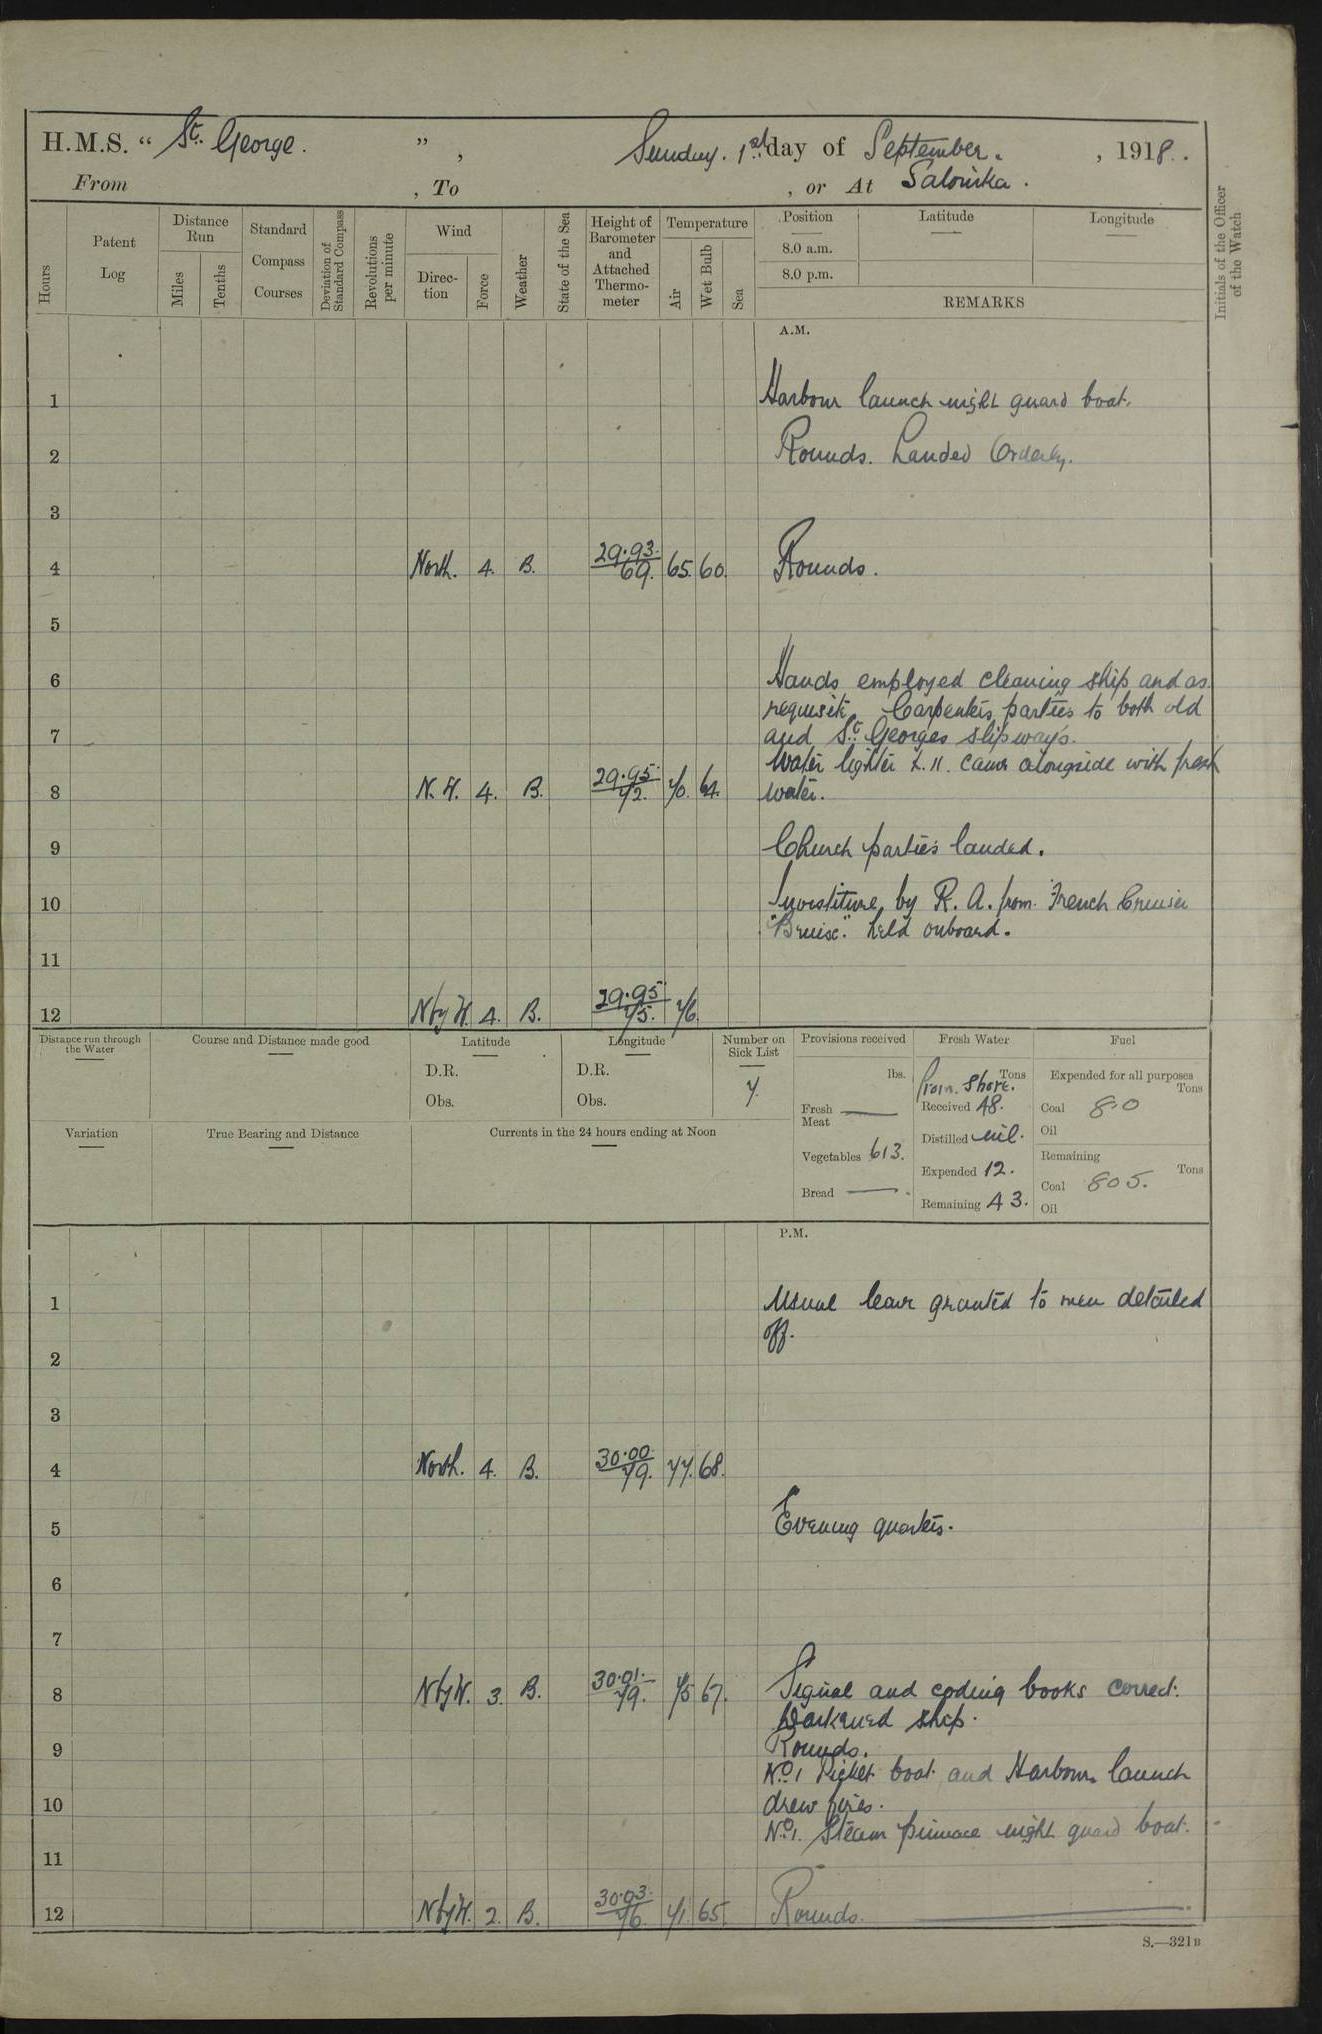 H.M.S. “ St. George. ” ,
Sunday. 1st. day of September. , 1918.
From , To , or At Salonika.
Hours
Patent Log
Distance Run
Miles
Tenths
Standard Compass Courses
Deviation of Standard Compass
Revolutions per minute
Wind
Direc-tion
Force
Weather
State of the Sea
Height of Barometer and Attached Thermo-meter
Temperature
Air
Wet Bulb
Sea
Position Latitude Longitude
8.0 a.m.
8.0 p.m.
REMARKS
Initials of the Officer of the Watch
A.M.
1 Harbour launch night guard boat.
2 Rounds. Landed Orderly.
3
4 North. 4. B. 29.93. 69. 65. 60. Rounds.
5
6 Hands employed cleaning ship and as
requisite. Carpenters parties to both old
7 and St. Georges slipways.
Water lighter X.11. came alongside with fresh
8 N.W. 4. B. 29.95. 72. 70. 64. water.
9 Church parties landed.
10 Investiture, by R. A. from French Cruiser
"Bruise." held onboard.
11
12 N by W. 4. B. 29.95 75. 76.
Distance run through the Water
Course and Distance made good
Latitude
D.R.
Obs.
Longitude
D.R.
Obs.
Number on Sick List
7.
Provisions received
lbs.
Fresh Meat —
Vegetables 613.
Bread —
Fresh Water
Tons
From. Shore.
Received 48.
Distilled nil.
Expended 12.
Remaining 43.
Fuel
Expended for all purposes
Tons
Coal 8.0
Oil
Remaining
Tons
Coal 805.
Oil
Variation
True Bearing and Distance
Currents in the 24 hours ending at Noon
P.M.
1 Usual leave granted to men detailed
off.
2
3
4 North. 4. B. 30.00. 79. 77. 68.
5 Evening quarters.
6
7
8 N by W. 3. B. 30.01. 79. 75 67. Signal and coding books correct.
Darkened ship.
9 Rounds.
No. 1 Picket boat and Harbour launch
10 drew fires.
No. 1. Steam pinnace night guard boat.
11
12 N by W. 2. B. 30.03. 76. 71. 65. Rounds.
S.—321B